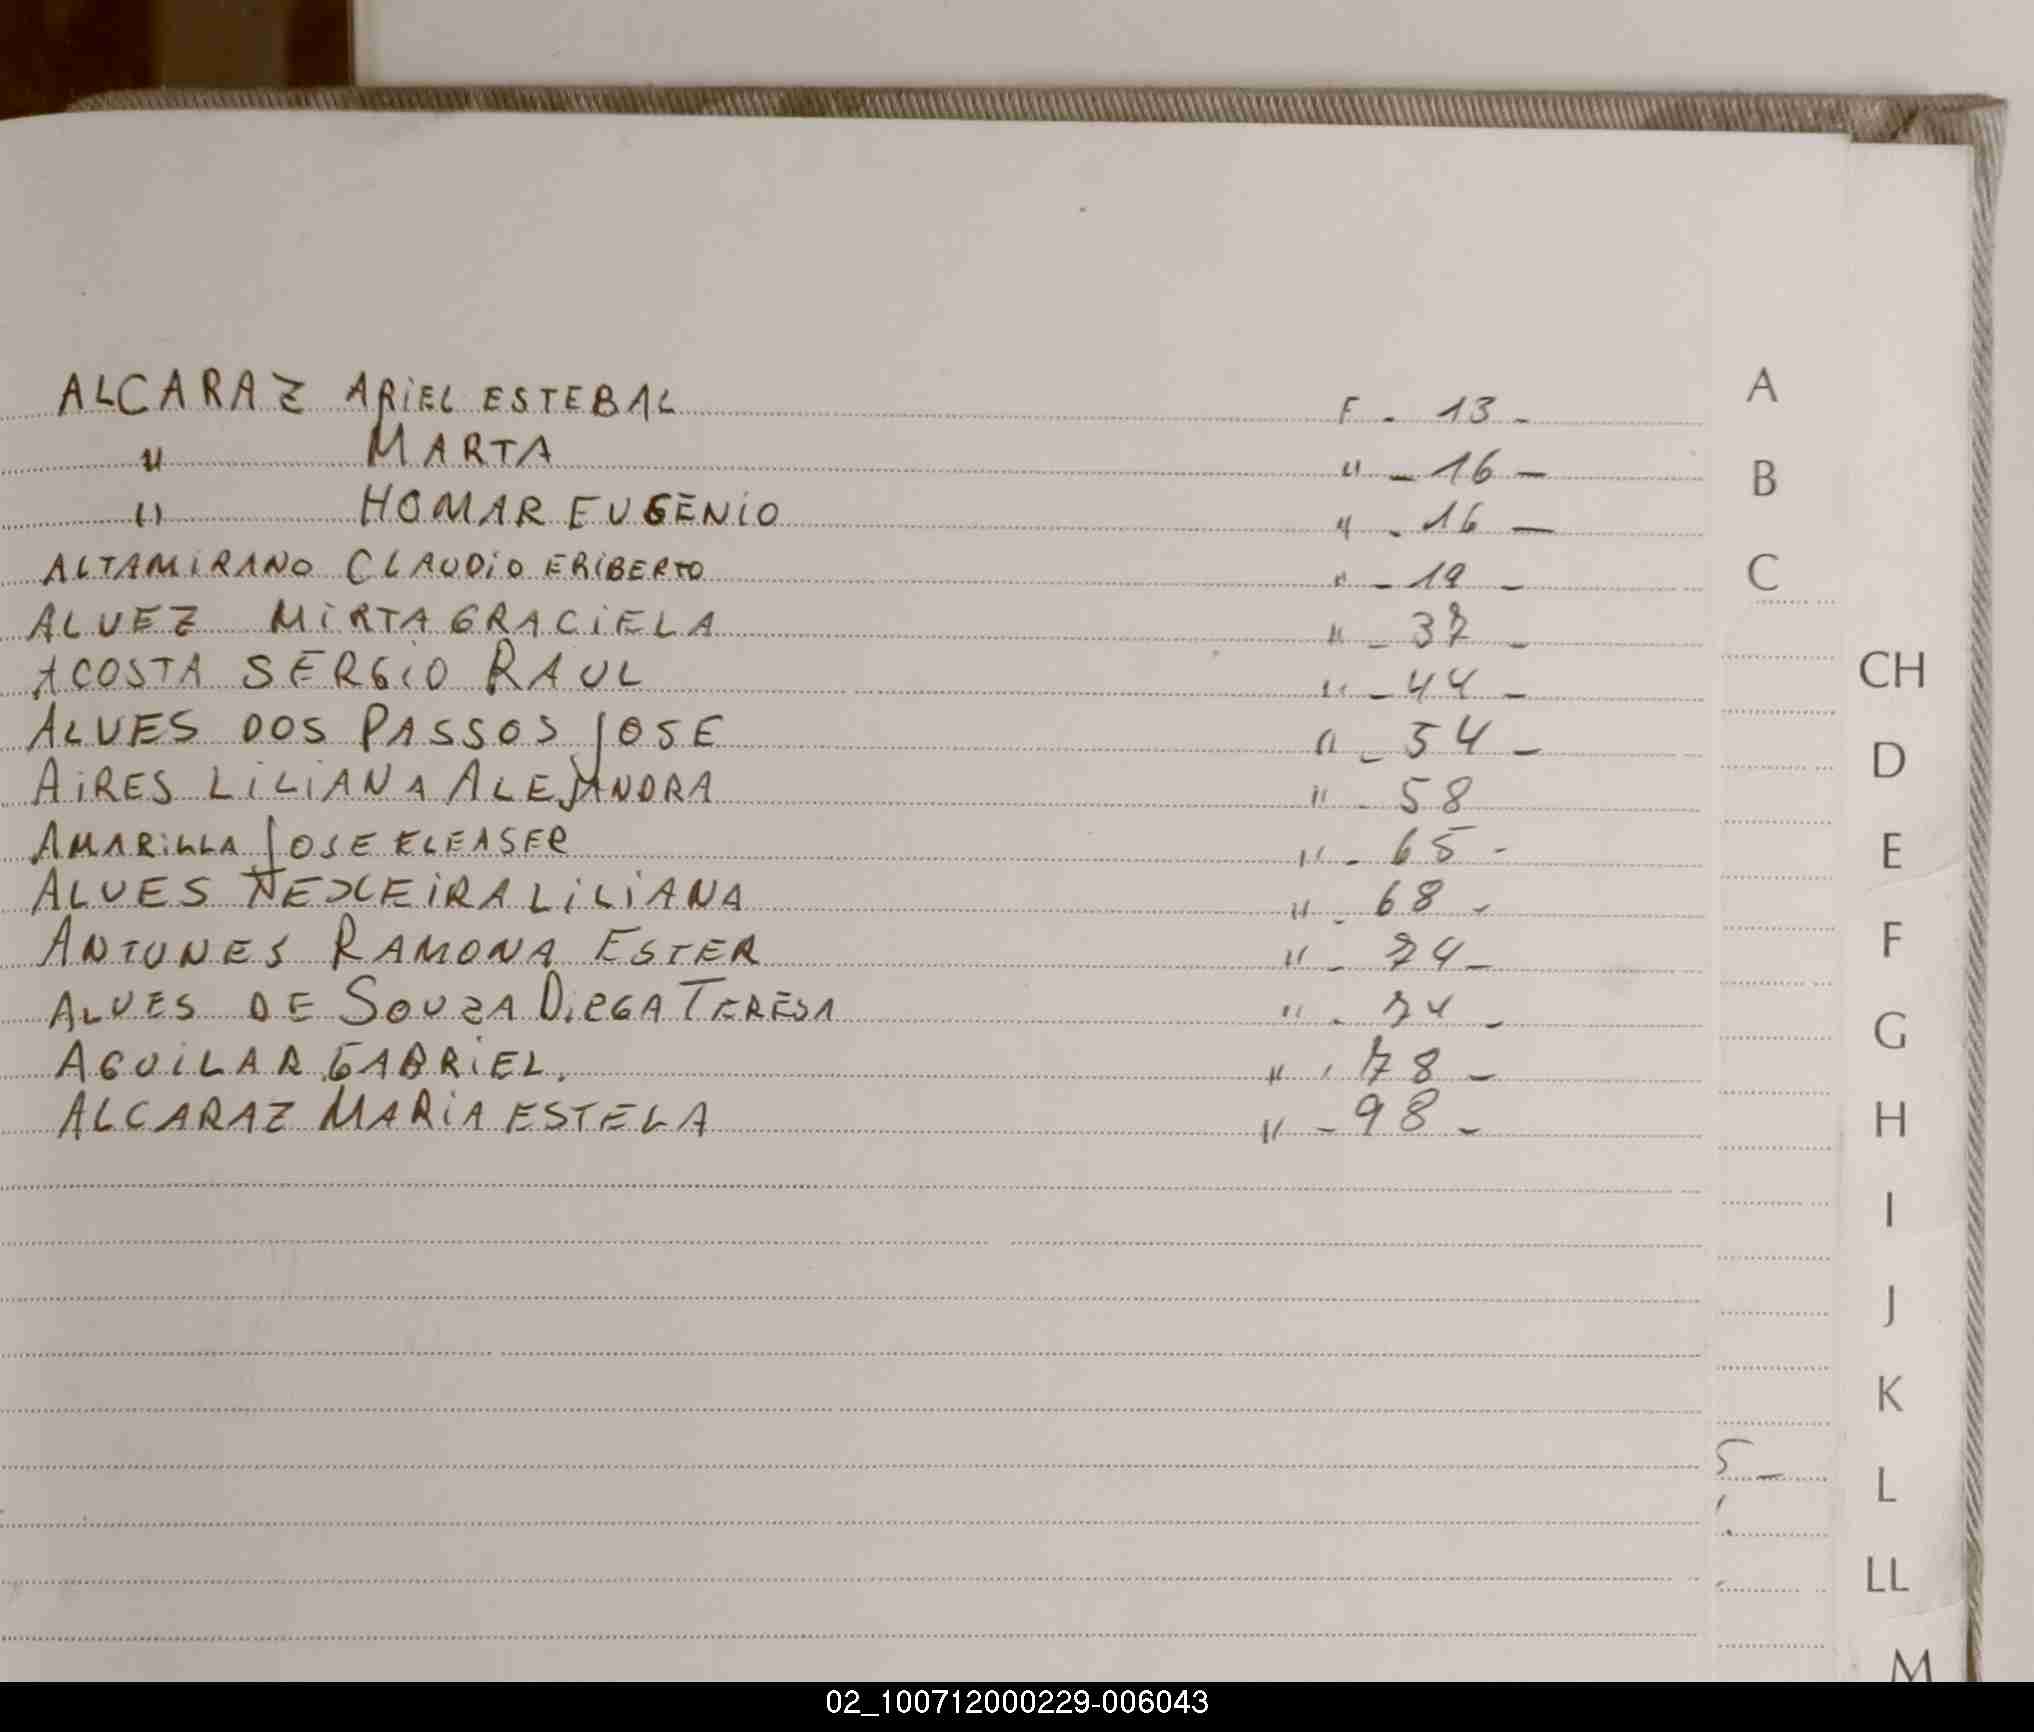 ALCARAZ ARIEL ESTEBAL F - 13 -
" MARTA " - 16 -
" HOMAR EUGENIO " - 16 -
ALTAMIRANO CLAUDIO ERIBERTO " - 19 -
ALVEZ MIRTA GRACIELA " - 37 -
ACOSTA SERGIO RAUL " - 44 -
ALVES DOS PASSOS JOSE " - 54 -
AIRES LILIANA ALEJANDRA " - 58
AMARILLA JOSE ELEASER " - 65 -
ALVES LILIANA " - 68 -
ANTUNES RAMONA ESTER " - 74 -
ALVES DE SOUZA TERESA " - 74 -
AGUILAR GABRIEL. " - 78 -
ALCARAZ MARIA ESTELA " - 98 -
A
B
C
CH
D
E
F
G
H
I
J
K
5 -
L
LL
M
02_100712000229-006043